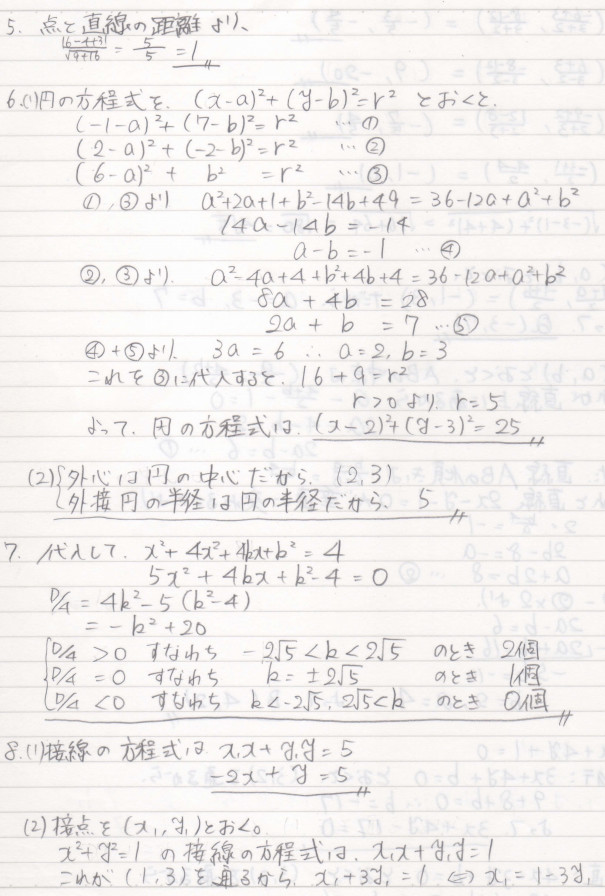 5. 点と直線の距離より、
|6-4+3|/√9+16 = 5/5 = 1
6.(1)円の方程式を、(x-a)²+(y-b)²=r² とおくと、
(-1-a)²+(7-b)²=r² …①
(2-a)²+(-2-b)²=r² …②
(6-a)²+ b² =r² …③
①,③より a²+2a+1+b²-14b+49=36-12a+a²+b²
14a-14b=-14
a-b=-1 …④
②,③より、a²-4a+4+b²+4b+4=36-12a+a²+b²
8a+4b=28
2a+b=7 …⑤
④+⑤より、3a=6 ∴a=2, b=3
これを③に代入すると、16+9=r²
r>0より、r=5
よって、円の方程式は、(x-2)²+(y-3)²=25
(2){外心は円の中心だから、(2,3)
外接円の半径は円の半径だから、5
7. 代入して、x²+4x²+4kx+k²=4
5x²+4kx+k²-4=0
D/4=4k²-5(k²-4)
=-k²+20
{D/4>0 すなわち -2√5<k<2√5 のとき 2個
D/4=0 すなわち k=±2√5 のとき 1個
D/4<0 すなわち k<-2√5, 2√5<k のとき 0個
8.(1)接線の方程式は、x₁x+y₁y=5
-2x+y=5
(2)接点を(x₁,y₁)とおく。
x²+y²=1 の接線の方程式は、x₁x+y₁y=1
これが(1,3)を通るから、x₁+3y₁=1 ⇔ x₁=1-3y₁